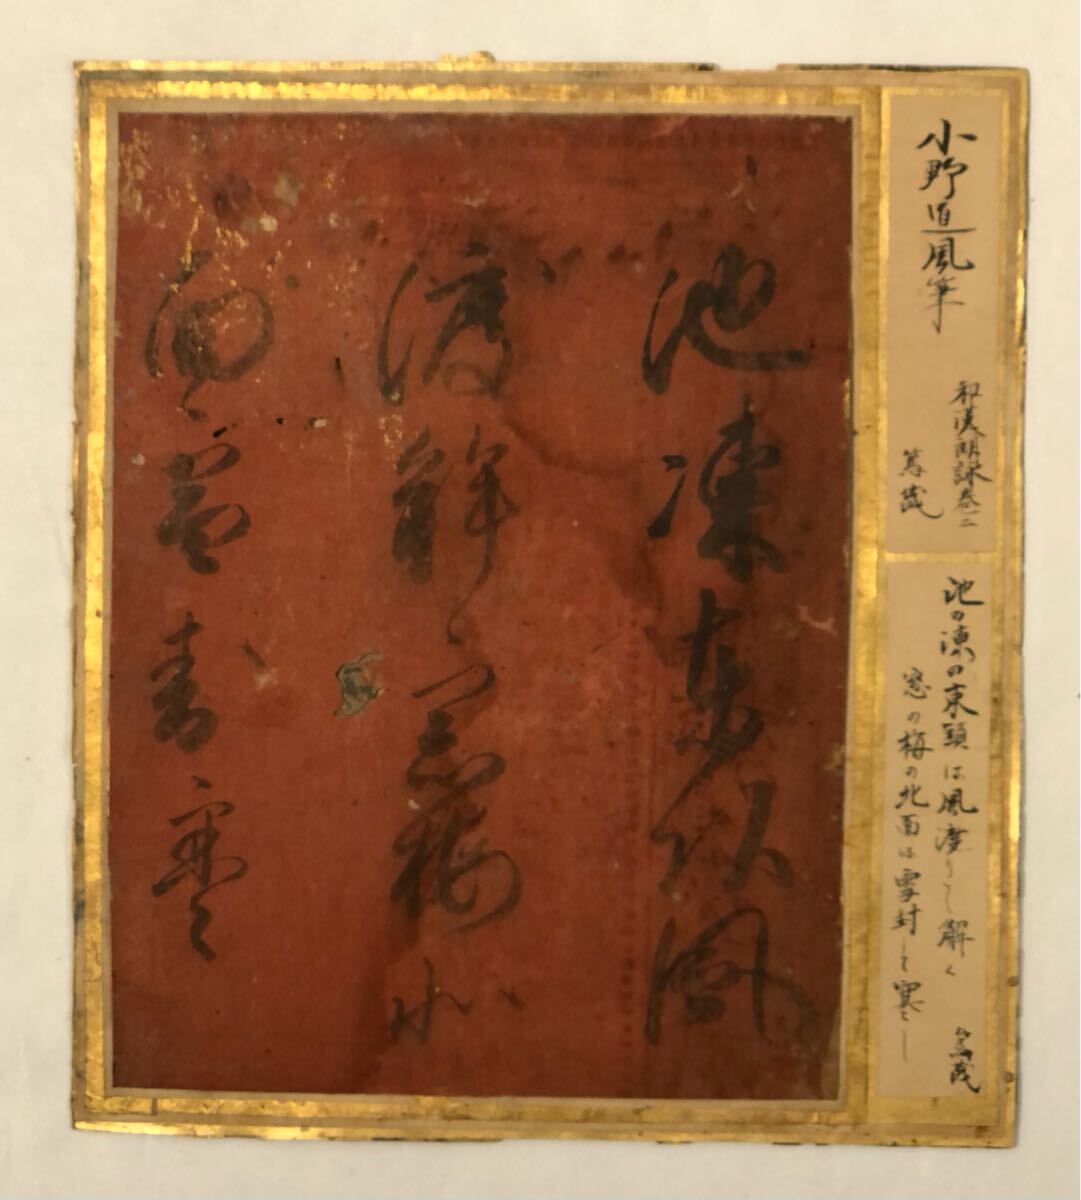 小野道風筆
和漢朗詠巻二
篤茂
池の凍の東頭は風度りて解く
窓の梅の北面は雪封して寒し
篤茂
池凍東頭風
渡解窓梅北
面雪封寒